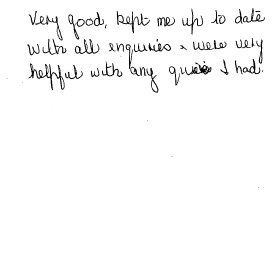 Very good, kept me up to date
with all enquiries & were very
helpful with any I had.